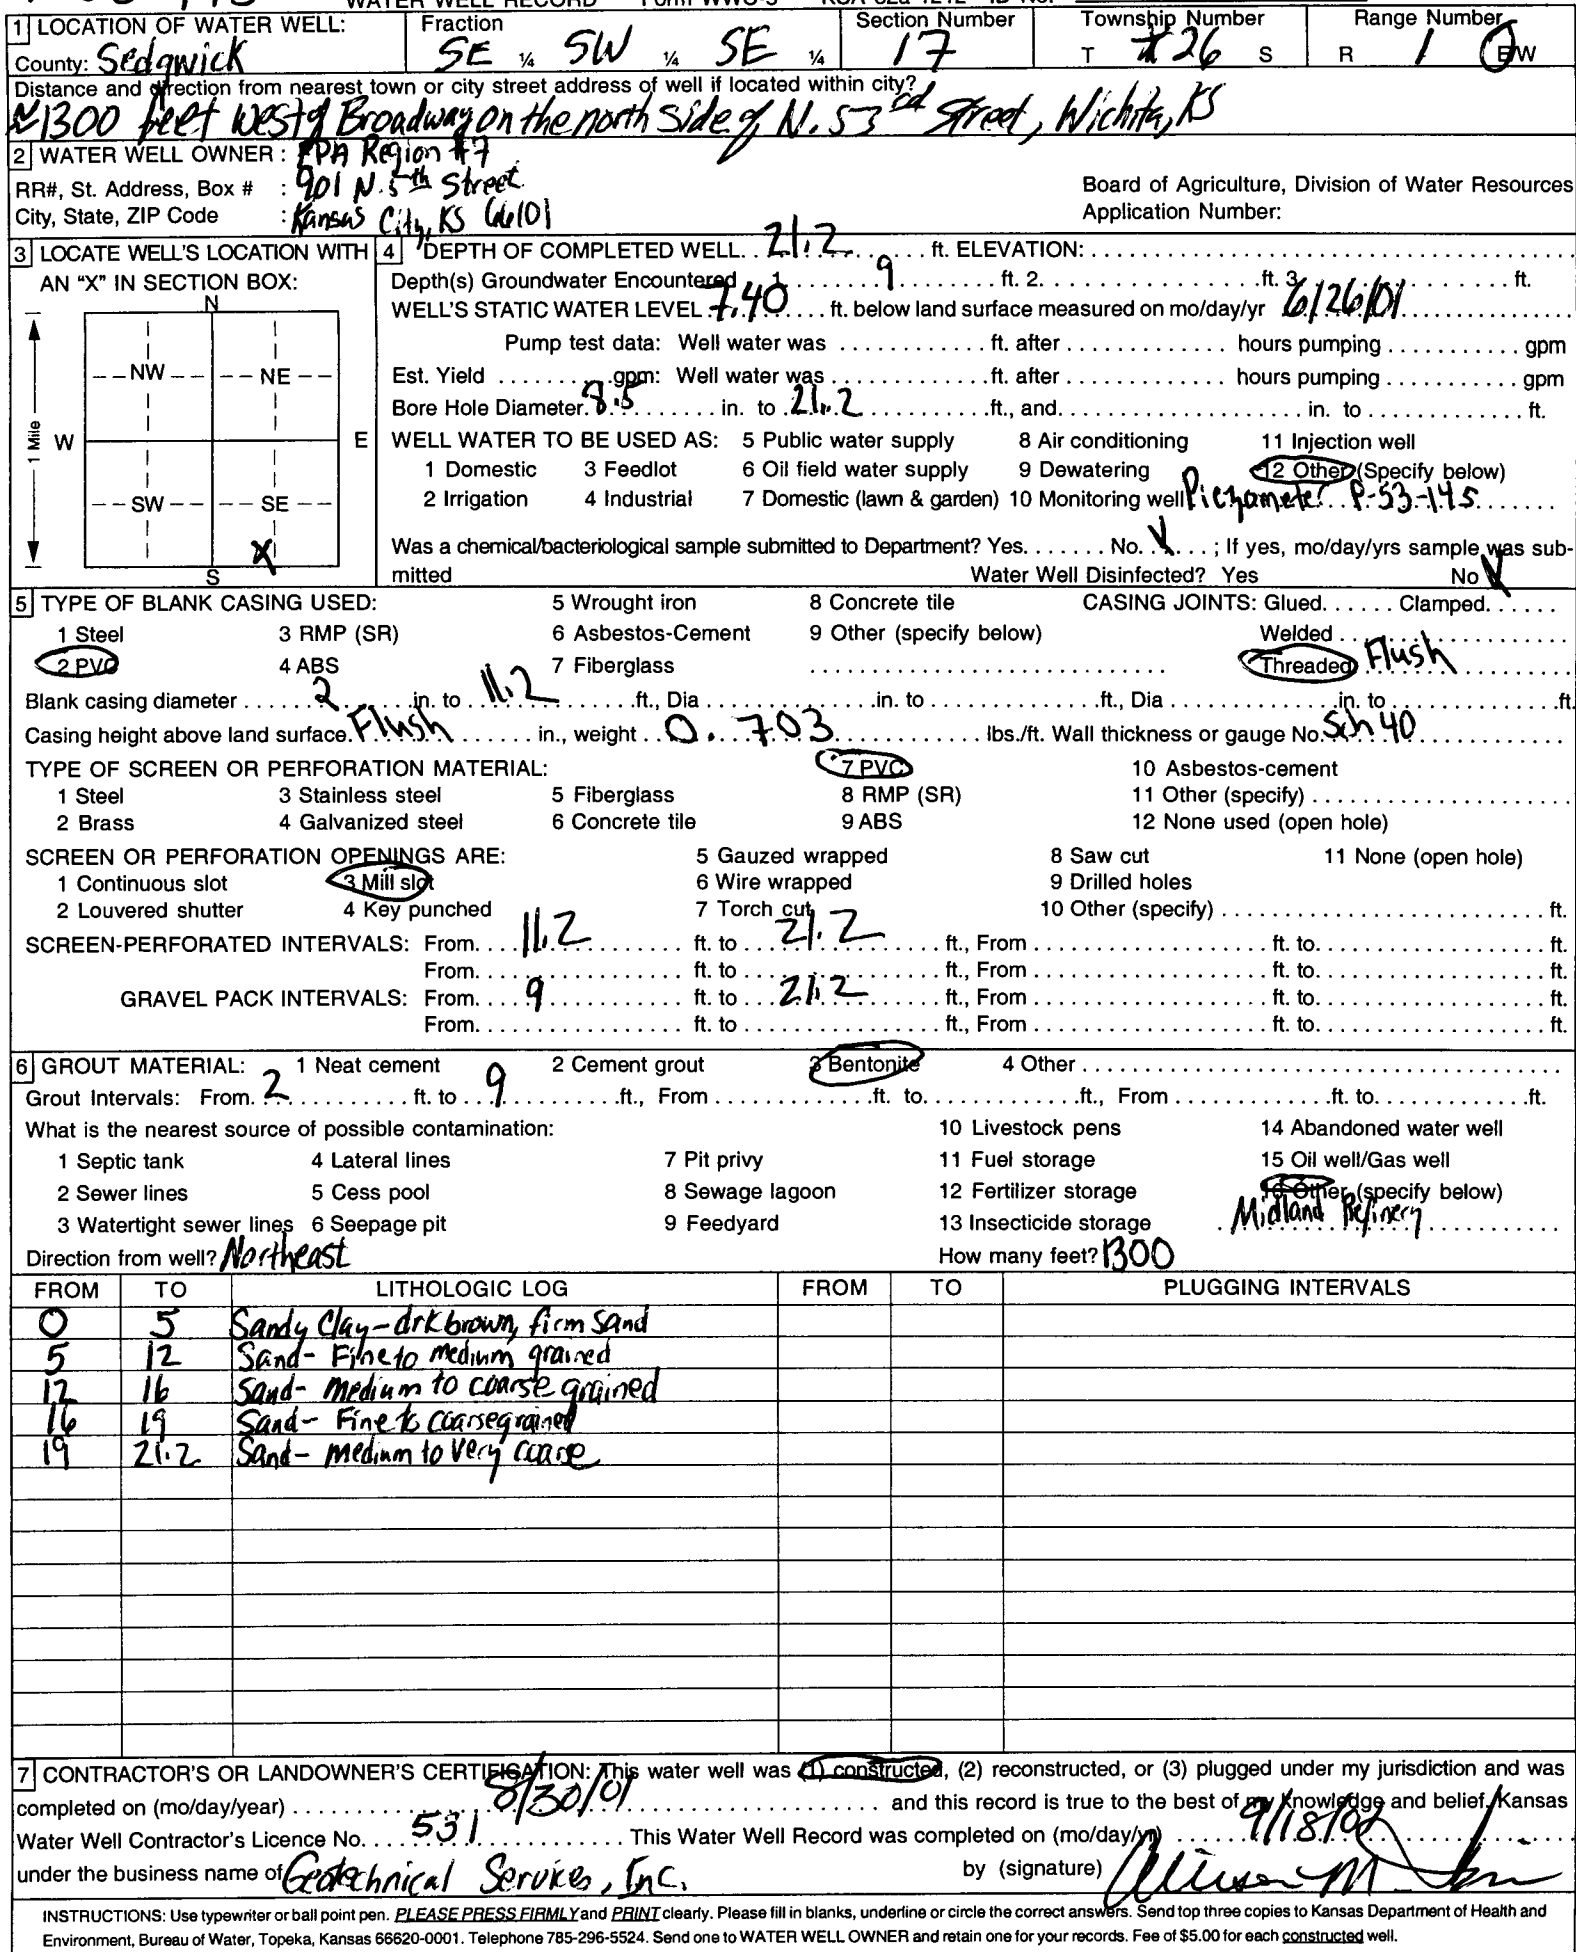 WATER WELL RECORD Form WWC-5 KSA 82a-1212 ID No.
1 LOCATION OF WATER WELL: Fraction Section Number Township Number Range Number
County: Sedgwick SE ¼ SW ¼ SE ¼ 17 T 26 S R 1 E/W
Distance and direction from nearest town or city street address of well if located within city?
≈1300 feet west of Broadway on the north side of N. 53rd Street, Wichita, KS
2 WATER WELL OWNER: EPA Region #7
RR#, St. Address, Box # : 901 N. 5th Street Board of Agriculture, Division of Water Resources
City, State, ZIP Code : Kansas City, KS 66101 Application Number:
3 LOCATE WELL'S LOCATION WITH AN "X" IN SECTION BOX:
N
NW NE
W E
SW SE
X
S
1 Mile
4 DEPTH OF COMPLETED WELL 21.2 ft. ELEVATION:
Depth(s) Groundwater Encountered 1. 9 ft. 2. ft. 3. ft.
WELL'S STATIC WATER LEVEL 7.40 ft. below land surface measured on mo/day/yr 6/26/01
Pump test data: Well water was ft. after hours pumping gpm
Est. Yield gpm: Well water was ft. after hours pumping gpm
Bore Hole Diameter 8.5 in. to 21.2 ft., and in. to ft.
WELL WATER TO BE USED AS: 5 Public water supply 8 Air conditioning 11 Injection well
1 Domestic 3 Feedlot 6 Oil field water supply 9 Dewatering 12 Other (Specify below)
2 Irrigation 4 Industrial 7 Domestic (lawn & garden) 10 Monitoring well Piezometer P-53-145
Was a chemical/bacteriological sample submitted to Department? Yes No ✓ ; If yes, mo/day/yrs sample was sub-
mitted Water Well Disinfected? Yes No ✓
5 TYPE OF BLANK CASING USED: 5 Wrought iron 8 Concrete tile CASING JOINTS: Glued Clamped
1 Steel 3 RMP (SR) 6 Asbestos-Cement 9 Other (specify below) Welded
2 PVC 4 ABS 7 Fiberglass Threaded Flush
Blank casing diameter 2 in. to 11.2 ft., Dia in. to ft., Dia in. to ft.
Casing height above land surface Flush in., weight 0.703 lbs./ft. Wall thickness or gauge No. Sch 40
TYPE OF SCREEN OR PERFORATION MATERIAL: 7 PVC 10 Asbestos-cement
1 Steel 3 Stainless steel 5 Fiberglass 8 RMP (SR) 11 Other (specify)
2 Brass 4 Galvanized steel 6 Concrete tile 9 ABS 12 None used (open hole)
SCREEN OR PERFORATION OPENINGS ARE: 5 Gauzed wrapped 8 Saw cut 11 None (open hole)
1 Continuous slot 3 Mill slot 6 Wire wrapped 9 Drilled holes
2 Louvered shutter 4 Key punched 7 Torch cut 10 Other (specify) ft.
SCREEN-PERFORATED INTERVALS: From 11.2 ft. to 21.2 ft., From ft. to ft.
From ft. to ft., From ft. to ft.
GRAVEL PACK INTERVALS: From 9 ft. to 21.2 ft., From ft. to ft.
From ft. to ft., From ft. to ft.
6 GROUT MATERIAL: 1 Neat cement 2 Cement grout 3 Bentonite 4 Other
Grout Intervals: From 2 ft. to 9 ft., From ft. to ft., From ft. to ft.
What is the nearest source of possible contamination: 10 Livestock pens 14 Abandoned water well
1 Septic tank 4 Lateral lines 7 Pit privy 11 Fuel storage 15 Oil well/Gas well
2 Sewer lines 5 Cess pool 8 Sewage lagoon 12 Fertilizer storage 16 Other (specify below)
3 Watertight sewer lines 6 Seepage pit 9 Feedyard 13 Insecticide storage Midland Refinery
Direction from well? Northeast How many feet? 1300
FROM TO LITHOLOGIC LOG FROM TO PLUGGING INTERVALS
0 5 Sandy Clay-drk brown, firm sand
5 12 Sand- Fine to medium grained
12 16 Sand- medium to coarse grained
16 19 Sand- Fine to coarse grained
19 21.2 Sand- medium to very coarse
7 CONTRACTOR'S OR LANDOWNER'S CERTIFICATION: This water well was (1) constructed, (2) reconstructed, or (3) plugged under my jurisdiction and was
completed on (mo/day/year) 8/30/01 and this record is true to the best of my knowledge and belief. Kansas
Water Well Contractor's Licence No. 531 This Water Well Record was completed on (mo/day/yr) 9/18/02
under the business name of Geotechnical Services, Inc. by (signature)
INSTRUCTIONS: Use typewriter or ball point pen. PLEASE PRESS FIRMLY and PRINT clearly. Please fill in blanks, underline or circle the correct answers. Send top three copies to Kansas Department of Health and
Environment, Bureau of Water, Topeka, Kansas 66620-0001. Telephone 785-296-5524. Send one to WATER WELL OWNER and retain one for your records. Fee of $5.00 for each constructed well.